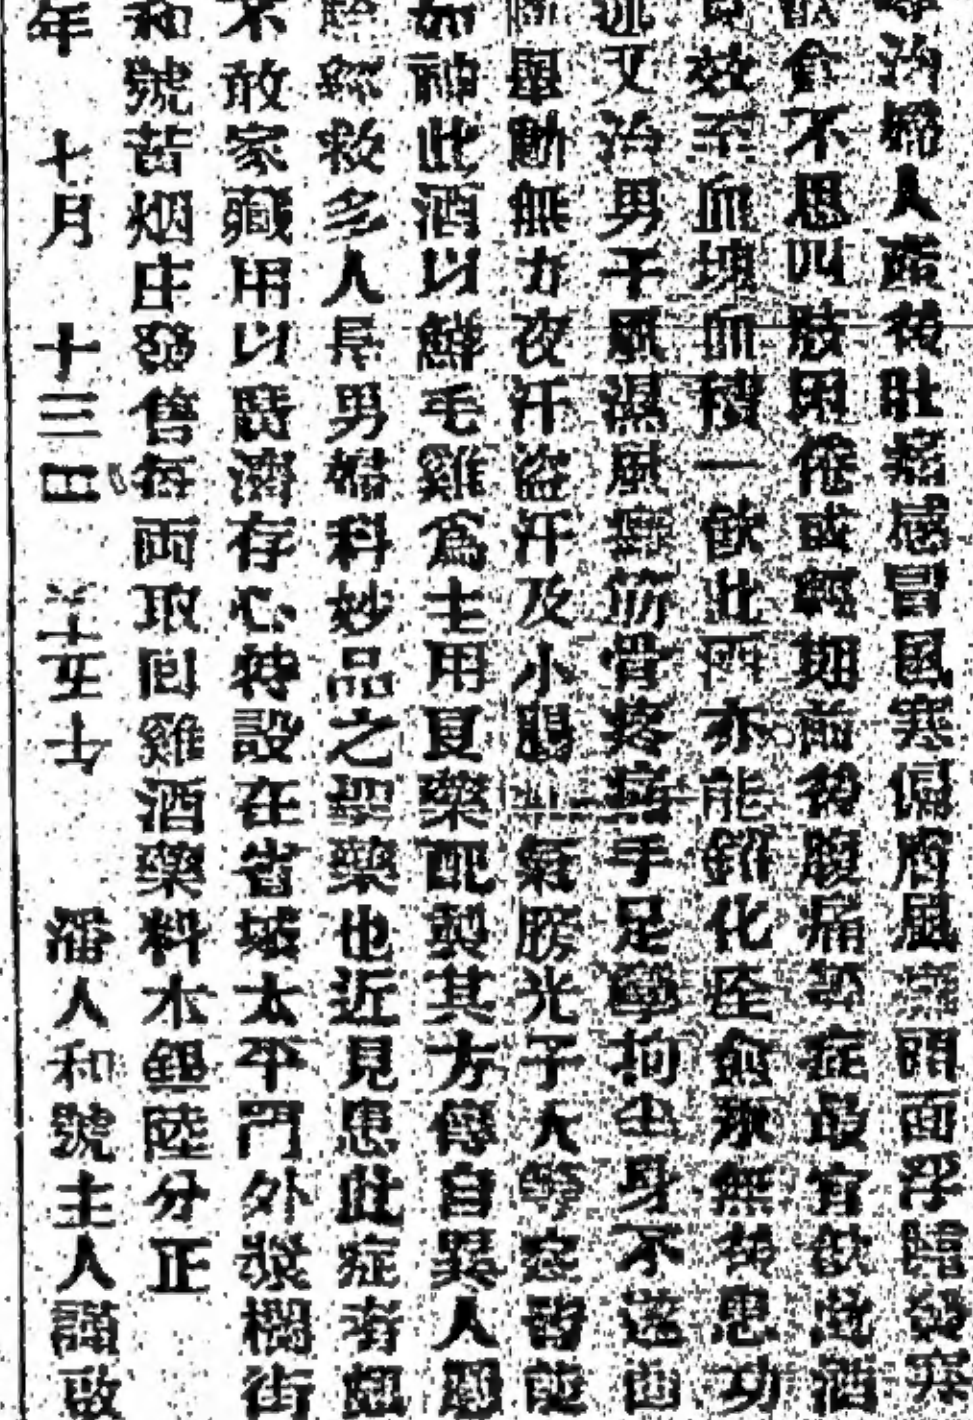 治婦人產後肚痛感冒風寒偏身風頭面浮腫發
食不思四肢困倦或經期前後腹痛等症最宜飲此酒
效至血塊血積一飲此酒亦能銷化痊愈永無後患功
又治男子風濕風筋骨疼痛手足攣拘半身不遂
舉動無力夜汗盜汗及小腸疝氣膀光子人等皆能
如神此酒以鮮毛雞為主用夏藥配製其方傳自異人
經救多人是男婦科妙品之聖藥也近見患此症者
不敢家藏用以廣濟存心特設在省城太平門外槳欄街
和號菩烟庄發售每兩取回雞酒藥料木銀陸分正
年 七月 十三日 潘人和號主人謹啟